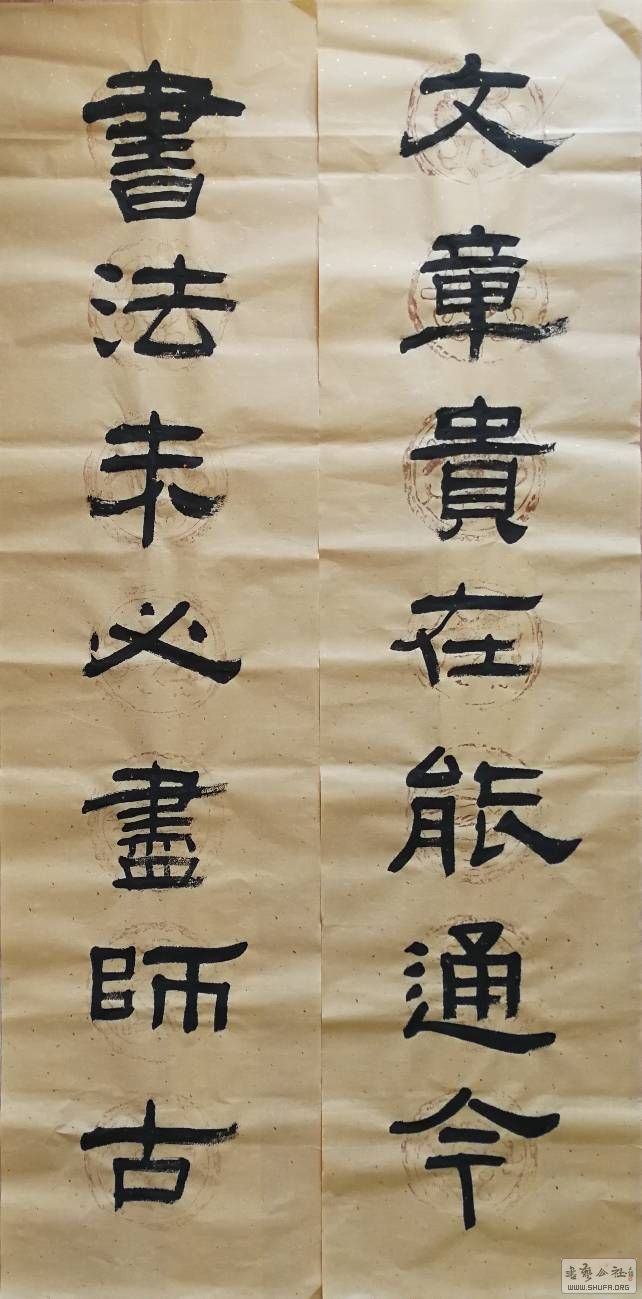 文章貴在能通今
書法未必盡師古
WWW.SHUFA.ORG